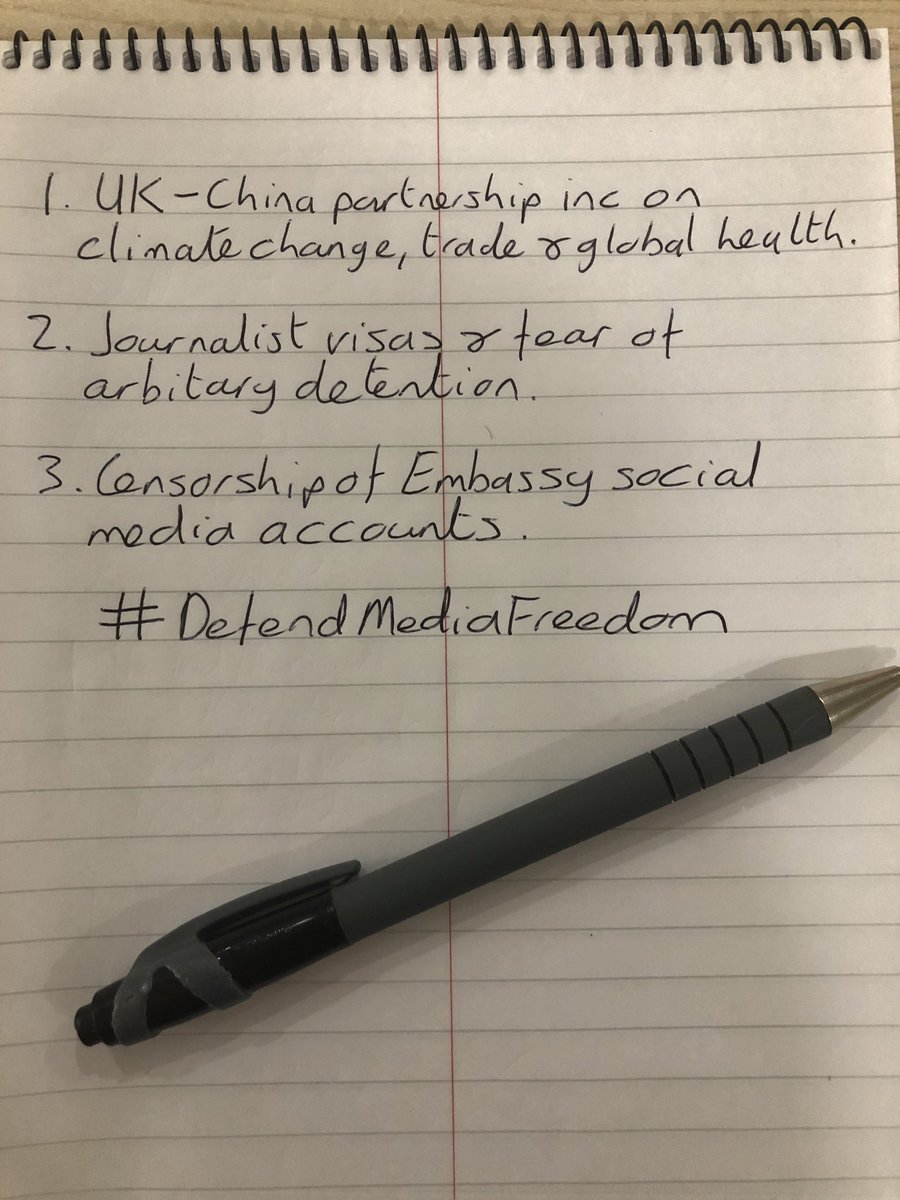 1. UK-China partnership inc on
climate change, trade & global health.
2. Journalist visas & fear of
arbitary detention.
3. Censorship of Embassy social
media accounts.
#DefendMediaFreedom